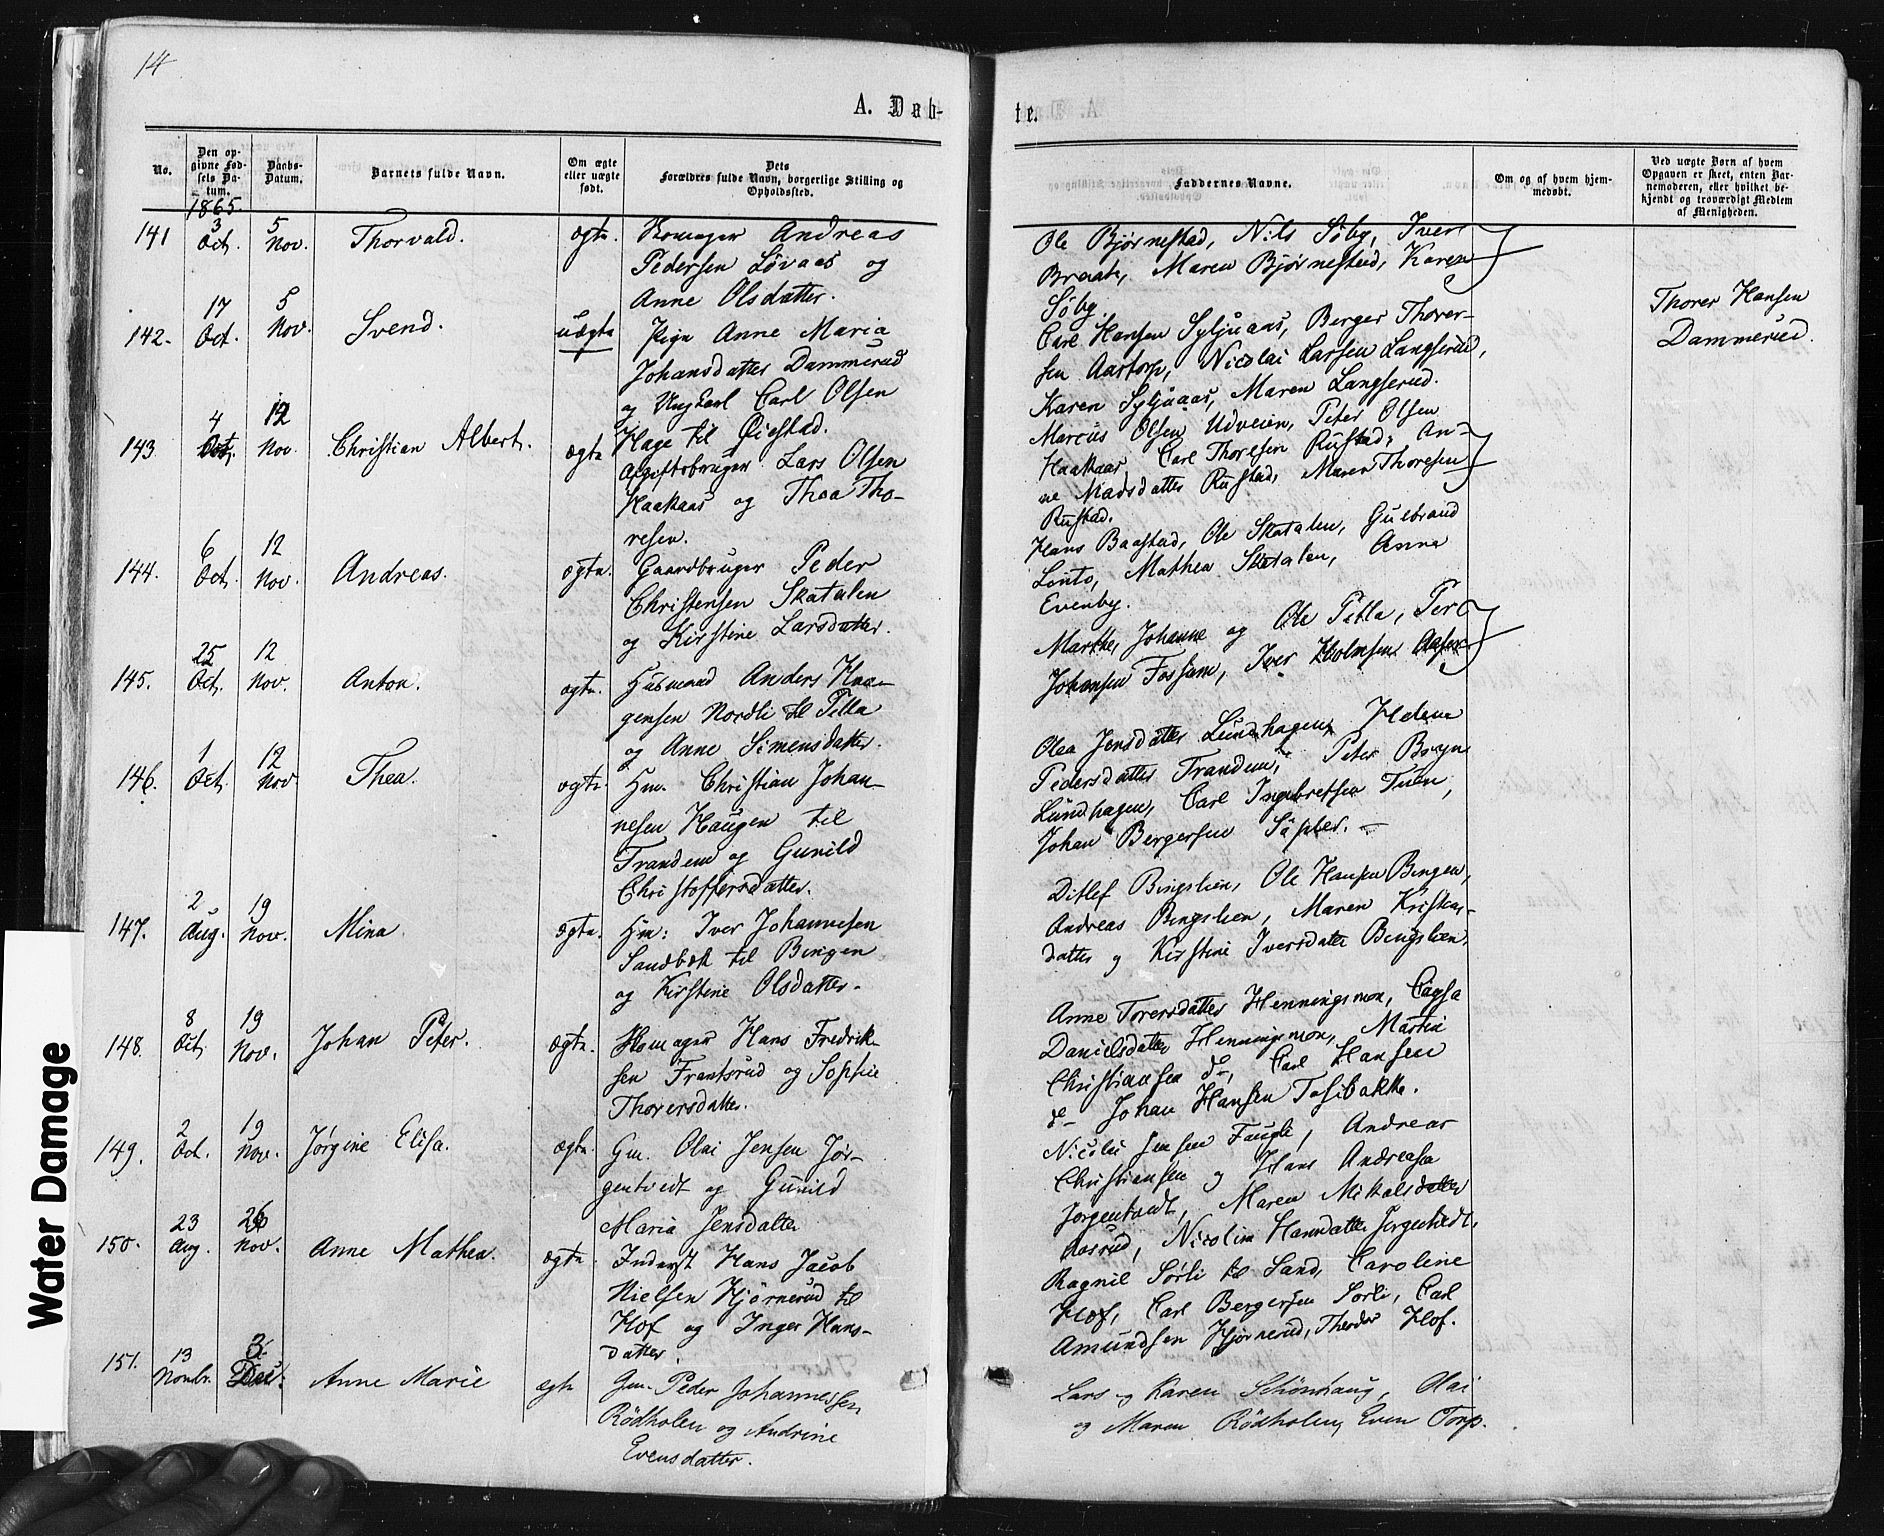 14
A. Døb-
te.
No.
Den op-
givne Fød-
sels Da-
tum.
Daabs-
Datum.
Barnets fulde Navn.
Om ægte
eller uægte
født.
Dets
Forældres fulde Navn, borgerlige Stilling og
Opholdssted.
Faddernes Navne.
Om og af hvem hjem-
medøbt.
Ved uægte Børn af hvem
Opgaven er skeet, enten Bar-
nemoderen, eller hvilket be-
kjendt og troværdigt Medlem
af Menigheden.
1865.
141
3
Oct.
5
Nov.
Thorvald.
ægte.
Skomager Andreas
Pedersen Løvaas og
Anne Olsdatter.
Ole Bjørnestad, Nils Søby, Iver
Braate, Maren Bjørnestad, Karen
Søby.
142.
17
Oct.
5
Nov.
Svend.
uægte
Pige Anne Maria
Johansdatter Dammerud
og Ungkarl Carl Olsen
Hage til Øiestad.
Carl Hansen Syljuaas, Berger Thorer-
sen Aastorp, Nicolai Larsen Langserud,
Karen Syljuaas, Maren Langserud.
Thorer Hansen
Dammerud.
143
4
Oct.
12
Nov.
Christian Albert.
ægte
Lars Olsen
Haakaas og Thea Tho-
resen.
Marcus Olsen Udveien, Peter Olsen
Haakaas, Carl Thoresen Rustad, An-
ne Madsdatter Rustad, Maren Thoresen
Rustad.
144.
6
Oct.
12
Nov.
Andreas.
ægte.
Gaardbruger Peder
Christensen Skatalen
og Kirstine Larsdatter.
Hans Baastad, Ole Skatalen, Gulbrand
Lonto, Mathea Skatalen, Anna
Evenby.
145.
25
Oct.
12
Nov.
Anton.
ægte.
Husmand Anders Haa-
gensen Nordli til Tilla
og Anne Simensdatter.
Marthe, Johanne og Ole Tilla, Per
Johansen Fossum, Iver Holmsen
146.
1
Oct.
12
Nov
Thea.
ægte.
Hm. Christian Johan-
nesen Haugen til
Trandem og Gunild
Christoffersdatter.
Olea Jensdatter Lundhagen, Helene
Pedersdatter Trandem, Peter Bryn
Lundhagen, Carl Ingebretsen Tuen,
Johan Bergersen Säther.
147.
2
Aug.
19
Nov.
Mina.
ægte.
Hm: Iver Johannesen
Sandbæk til Bingen
og Kirstine Olsdatter.
Ditlef Bingslien, Ole Hansen Bingen,
Andreas Bingslien, Maren Kristians-
datter og Kirstine Iversdatter Bingslien.
148.
8
Oct.
19
Nov.
Johan Peter.
ægte.
Skomager Hans Fredrik-
sen Frantsrud og Sophie
Thorersdatter.
Anne Torersdatter Henningsmon, Caysa
Danielsdatter Henningsmon, Martin
Christiansen do, Carl Hansen
do Johan Hansen Tosibakke.
149.
2
Oct.
19
Nov.
Jørgine Elisa.
ægte.
Gm. Olai Jensen Jør-
gentvedt og Gunild
Maria Jensdatter
Nicolai Jensen Faugli, Andreas
Christiansen og Hans Andreasen
Jørgentvedt, Maren Mikalsdatter
Aasrud, Nicoline Hansdatter Jørgentvedt.
150.
23
Aug.
26
Nov.
Anne Mathea.
ægte.
Inderst Hans Jacob
Nielsen Hjørnerud til
Hof og Inger Hans-
datter.
Ragnil Sørli til Sand, Caroline
Hof, Carl Bergersen Sørli, Carl
Amundsen Hjørnerud, Theodor Hof.
151.
13
Novbr.
3
Dec.
Anne Marie
ægte
Gm. Peder Johannessen
Rödholen og Andrine
Evensdatter.
Lars og Karen Schönhaug, Olai
og Maren Rödholen, Even Torp.
Water Damage